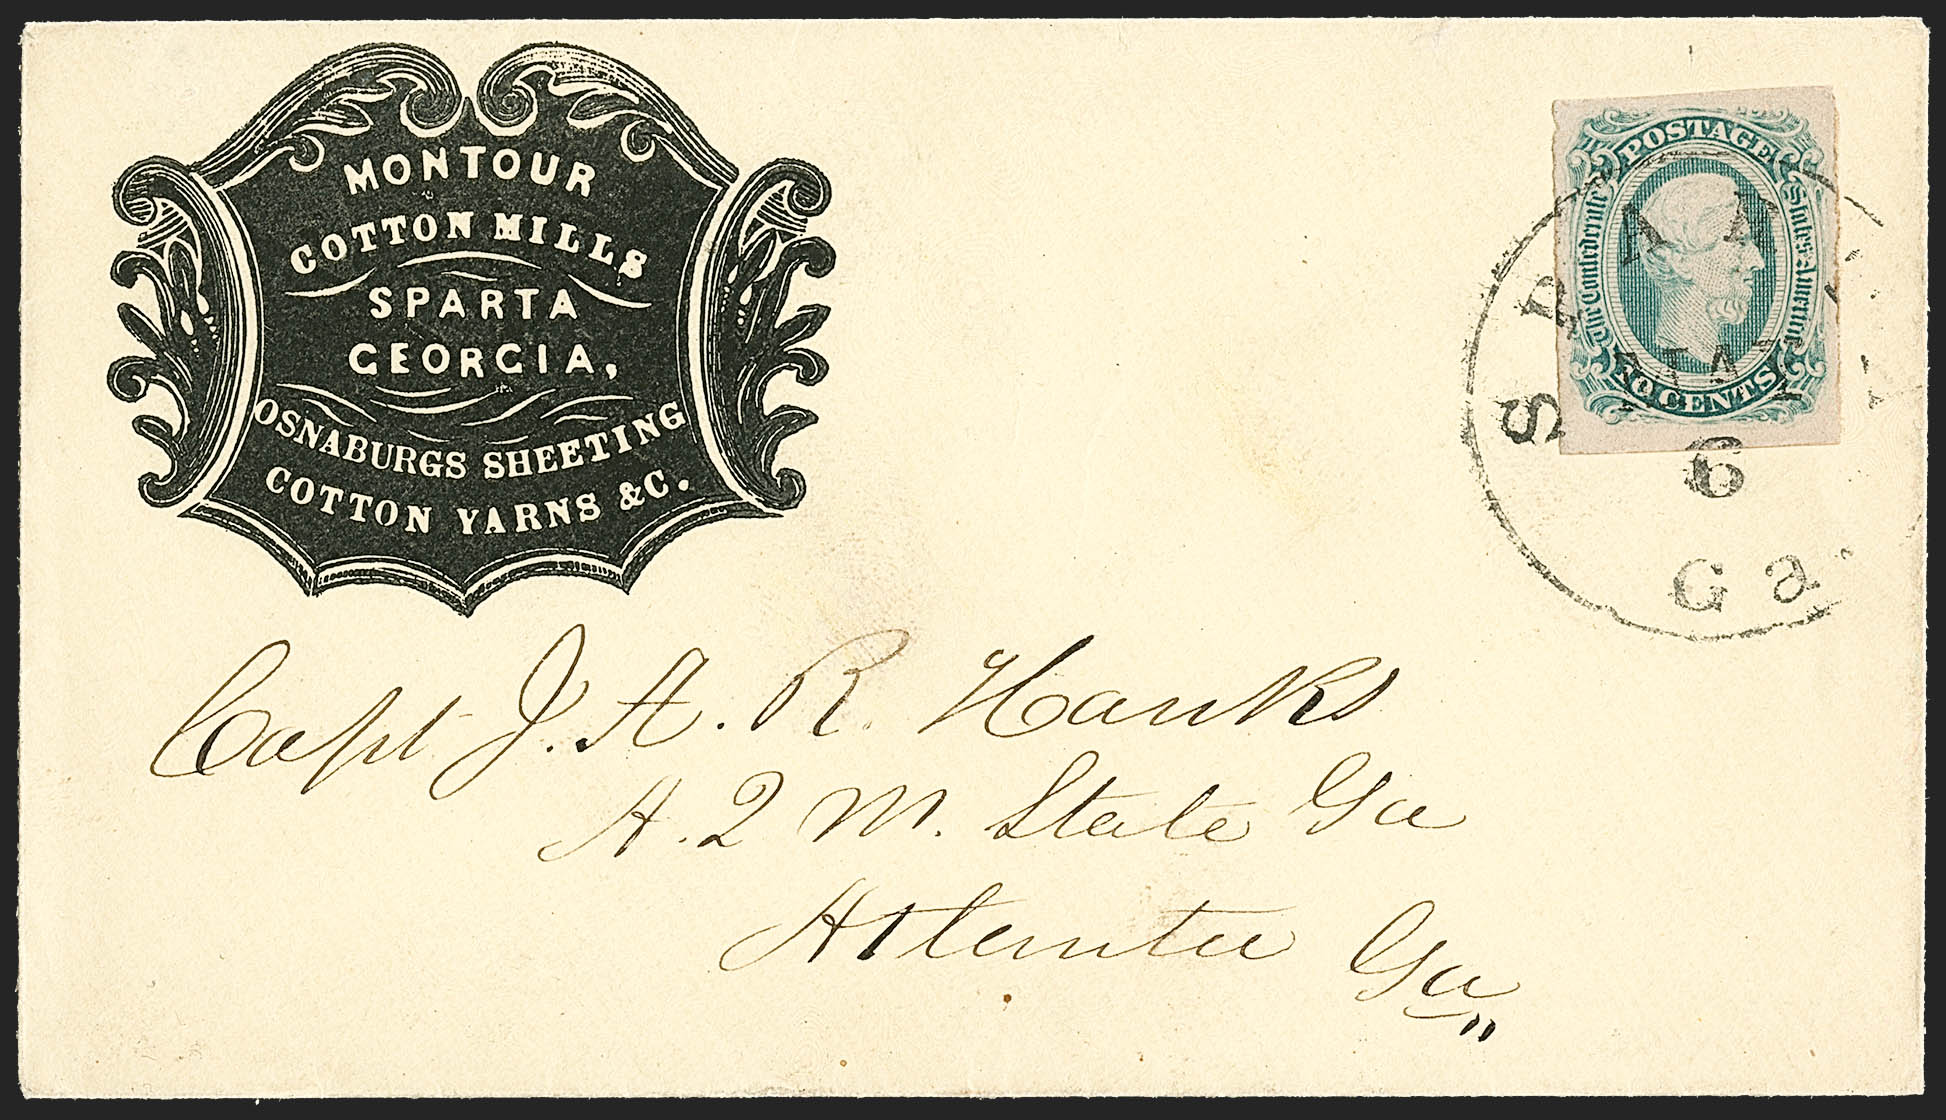 MONTOUR
COTTON MILLS
SPARTA
GEORGIA,
OSNABURGS SHEETING
COTTON YARNS &C.
POSTAGE
The Confederate
States of America
NO. CENTS
SPAR
6
Ga.
Capt J. A. R. Hanks
A. 2 M. State Ga
Atlanta Ga